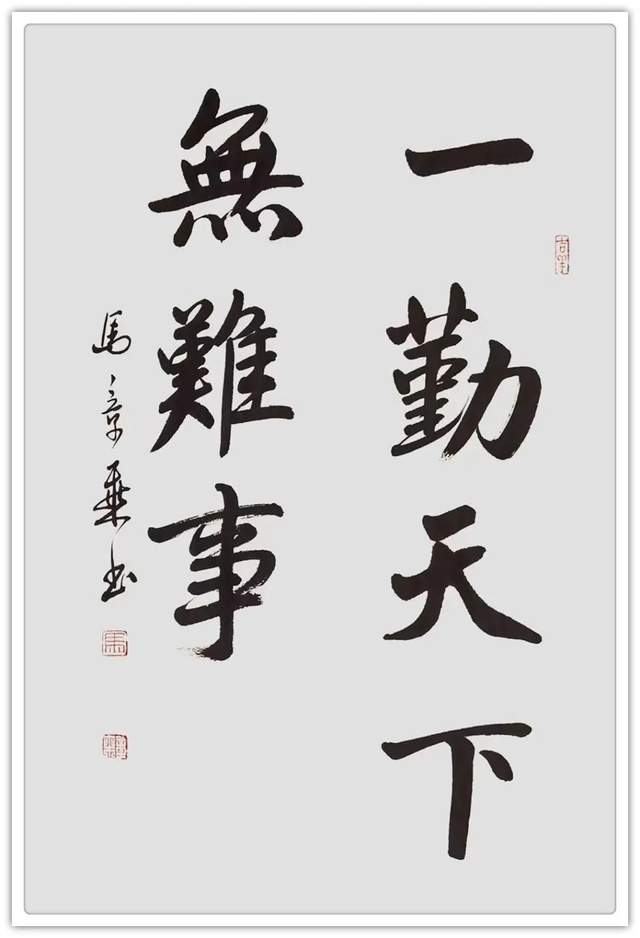 一勤天下
無難事
馬章乗书